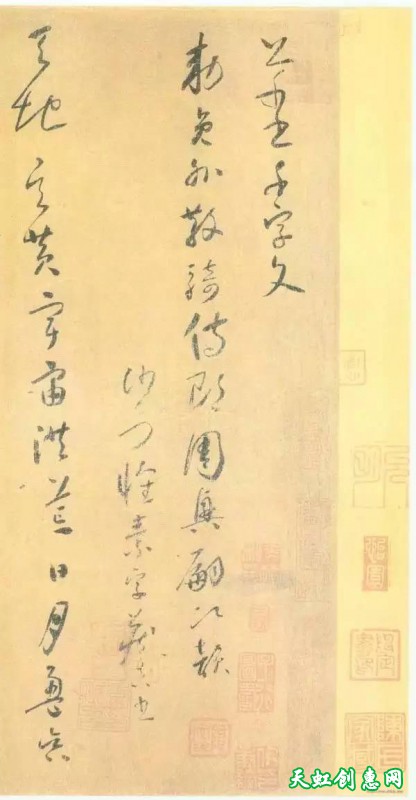 草書千字文
敕員外散騎侍郎周興嗣次韻
沙門懷素字藏真書
天地玄黃宇宙洪荒日月盈昃
天虹创惠网